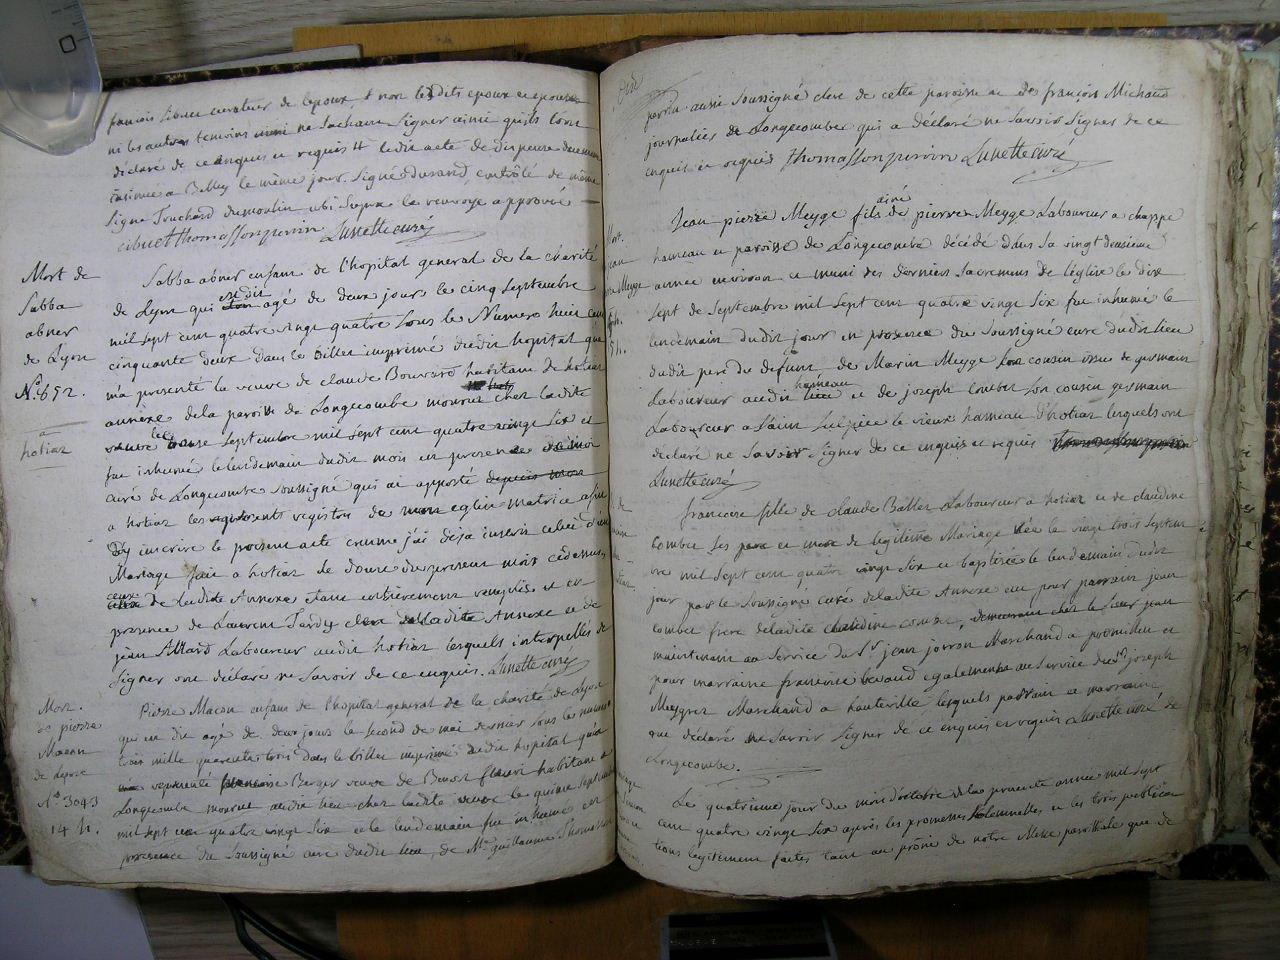 françois sibuet curateur de lepoux, non lesdits epoux et epouse
ni les autres temoins ne sachant signer ainsi quils lont
déclaré de ce enquis et requis le dit acte de dispense
insinué a Belley le même jour. Signé Durand controlé de même
Signé Touchard dumoulin ubi supra le renvoye approuvé
sibuet thomasson perrin Lunette curé
Mort de
Sabba
abner
de Lyon
N.º 852.
a
hotiaz
Sabba abner enfant de l'hopital general de la charité
de Lyon qui est dit agé de deux jours le cinq septembre
mil sept cent quatre vingt quatre sous le Numero huit cent
cinquante deux dans le billet imprimé dudit hopital que
m'a presenté la veuve de claude Bouvard habitant de hotiaz
annèxe de la paroisse de Longecombe mourut chez la dite
veuve le septembre mil sept cent quatre vingt six et
fut inhumé le lendemain dudit mois en presence de moi
curé de Longecombe soussigné qui ai apporté
a hotiaz les registres de mon eglise matrice afin
d'y inscrire le present acte comme j'ai deja inscrit celui d'un
Mariage fait a hotiaz le douze du present mois cidessus,
ceux de ladite Annexe etant entierement remplis et en
presence de Laurent Tardy clerc de ladite Annexe et de
jean Allard Laboureur audit hotiaz lesquels interpellés de
signer ont déclarés ne savoir de ce enquis. Lunette curé
Mort.
de pierre
Macon
de Lyon
N.º 3043
14 h.
Pierre Macon enfant de l'hopital general de la charité de Lyon
qui est dit agé de deux jours le second de mai dernier sous les numero
trois mille quarente trois dans le billet imprimé dudit hopital qu'a
représenté francoise Berger veuve de Benoit fleuri habitant a
Longecombe mourut audit lieu chez ladite veuve le quinze septembre
mil sept cent quatre vingt six et le lendemain fut inhumé en
presence du soussigné curé dudit lieu, de M.re guillaume Thomasson
perrin aussi soussigné clerc de cette paroisse et de françois Michaud
journalier de Longecombe qui a déclaré ne savoir signer de ce
enquis et requis thomasson perrin Lunette curé
Mort.
Jean pierre Meyge fils de pierre ainé Meyge Laboureur a chappe
hameau et paroisse de Longecombe décédé dans sa vingt deuxieme
année environ et muni des derniers sacremens de l'église le dix
sept de septembre mil sept cent quatre vingt six fut inhumé le
lendemain dudit jour en presence du soussigné curé dudit lieu
dudit pere du defunt, de Marin Meyge son cousin issu de germain
Laboureur audit hameau et de joseph combet son cousin germain
Laboureur a saint Sulpice le vieux hameau d'hotiaz lesquels ont
déclaré ne savoir signer de ce enquis et requis
Lunette curé
francoise fille de claude Ballet Laboureur a hotiaz et de claudine
combet ses pere et mere de legitime Mariage née le vingt trois septem
bre mil sept cent quatre vingt six et baptisée le lendemain dudit
jour par le soussigné curé de ladite Annexe eut pour parrain jean
combet frere de ladite claudine combet,
maintenant au service du S.r jean jorron Marchand a
pour marraine francoise bevaud egalement au service du s.r joseph
Meygret Marchand a hauteville lesquels parrain et marraine
ont déclaré ne savoir signer de ce enquis et requis Lunette curé de
Longecombe.
Le quatrieme jour du mois d'octobre de la presente année mil sept
cent quatre vingt six après les promesses solemnelles et les trois publica
tions legitement faites tant au prône de notre Messe paroissiale que de